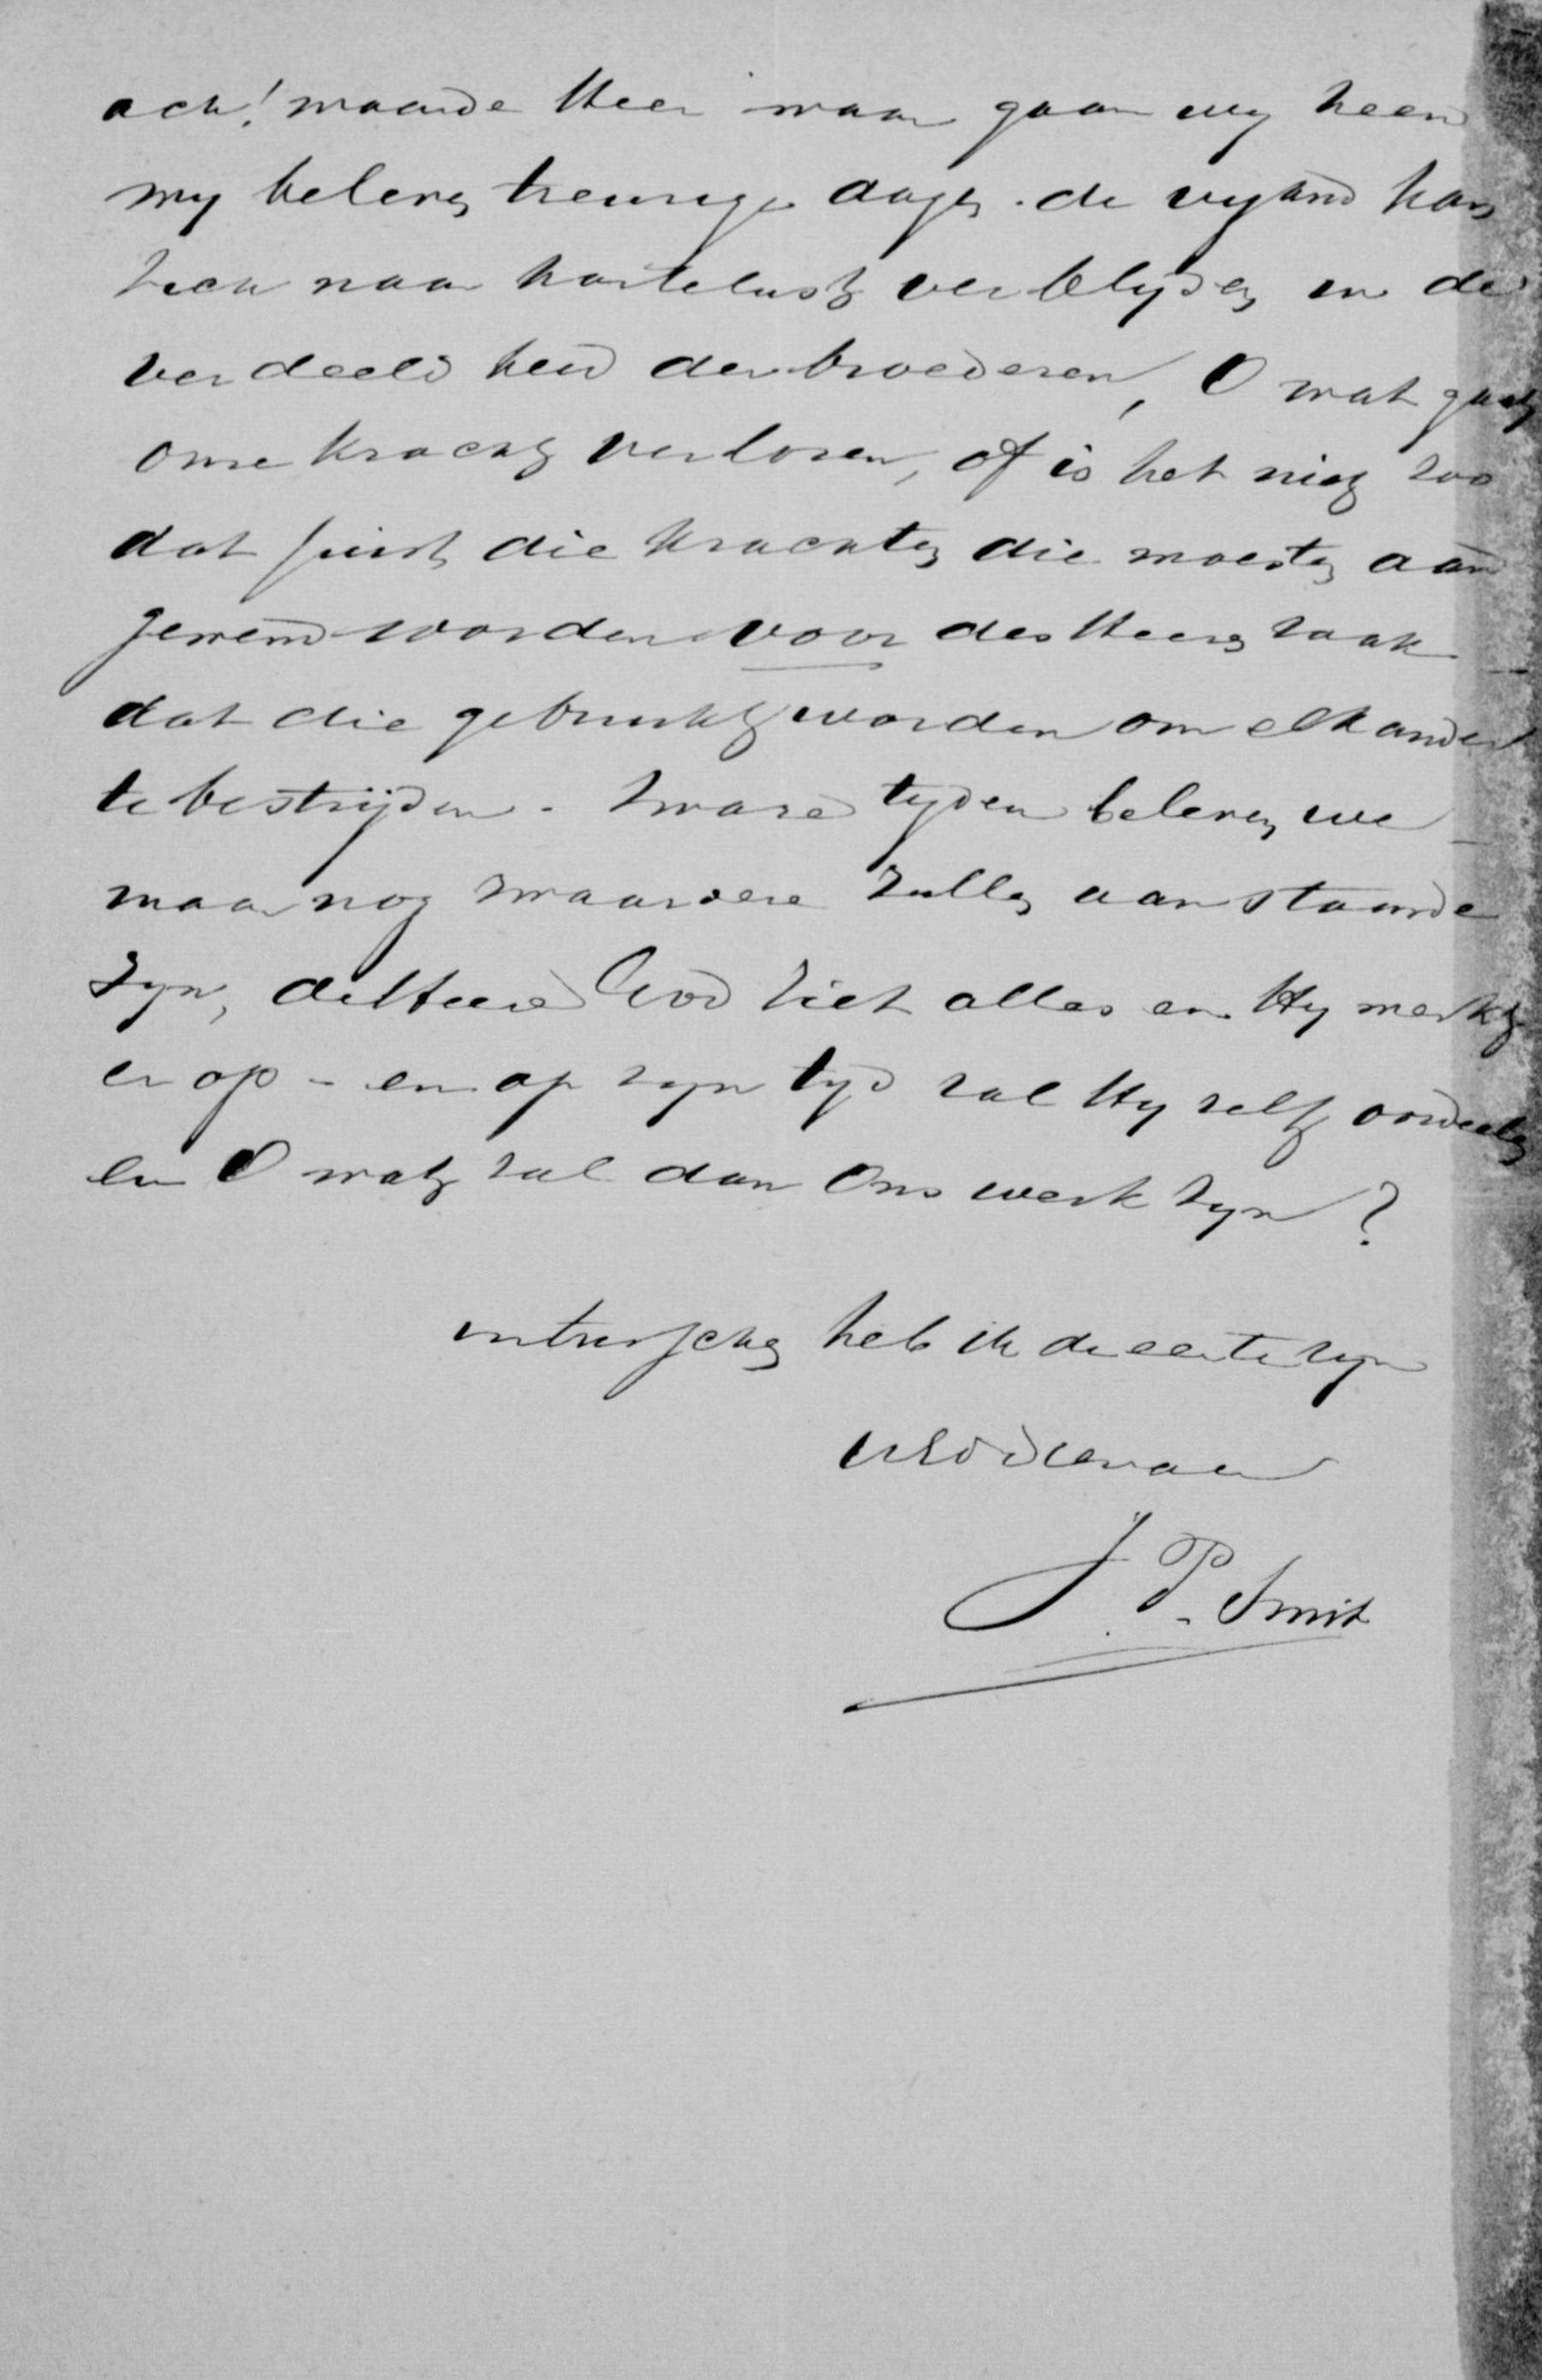 ach! waarde Heer waar gaan wy heen
wy beleven treurige dagen. de vyand kan
zich naar hartelust verblyden in de
verdeeldheid der broederen, O wat gaat
onze kracht verloren, of is het niet zoo
dat juist die krachten die moesten aan
gewend worden voor des Heeren zaak
dat die gebruikt worden om elkander
te bestrijden. Zware tyden beleven we
maar nog zwaardere zullen aanstaande
zyn, de Heere God ziet alles en Hy merkt
er op - en op zyn tyd zal Hy zelf oordeelen
en O wat zal dan Ons werk zyn?
intusschen heb ik de eer te zyn
UEd dienaar
J. P. Smit